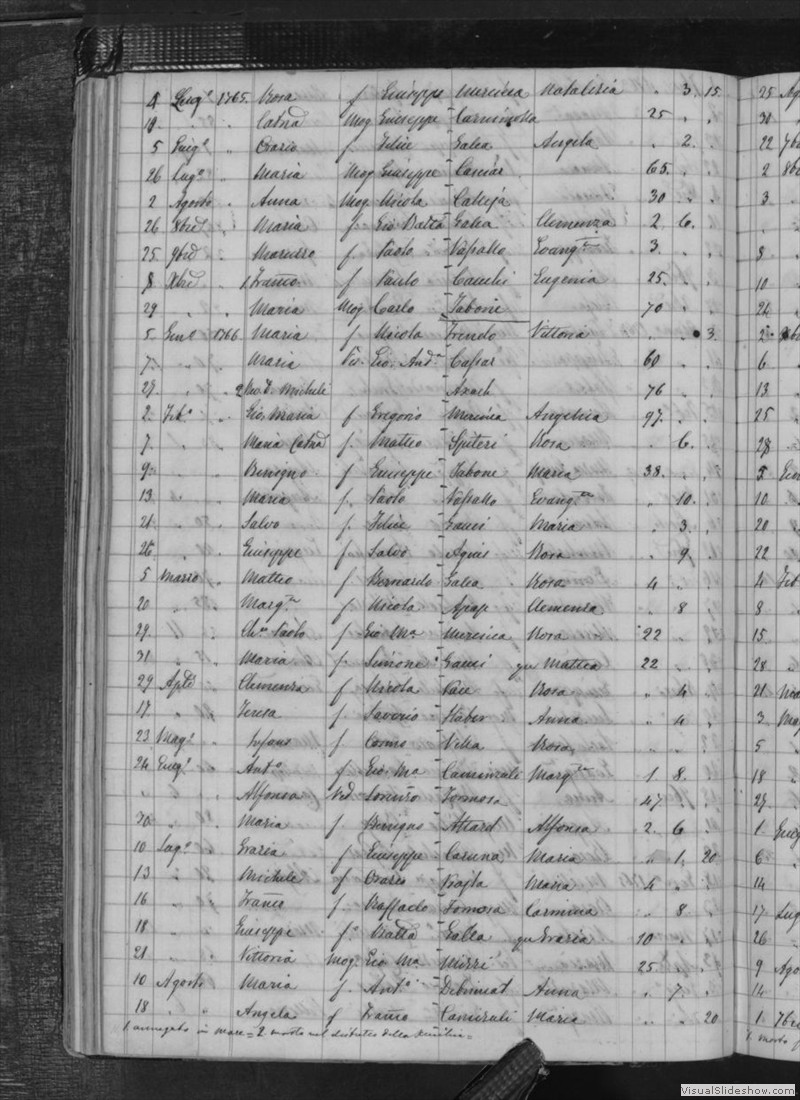 4 Lug.o 1765 Rosa f Giuseppe Mercieca Natalizia " 3 15
10 " " Catna Mog Giuseppe Carmina 25 " "
5 Giug.o " Orazio f Felice Galea Angela " 2 "
26 Lug.o " Maria Mog Giuseppe Camiar 65 " "
2 Agosto " Anna Mog Nicola Calleja 30 " "
26 8bre " Maria f Gio Batta Galea Clemenza 2 6 "
25 9bre " Marusso f Paolo Vassallo Evang.ta 3 " "
8 Xbre " 1 Franco f Paulo Cauchi Eugenia 25 " "
29 " " Maria Mog Carlo Tabone 70 " "
5 Gen.o 1766 Maria f Nicola Trendo Vittoria " " 3
7 " " Maria Ve. Gio. And.a Cassar 60 " "
29 " " 2 D. Michele Axach 76 " "
2 Feb.o " Gio. Maria f Gregorio Mercieca Angelica 97 " "
7 " Maria Catna f Matteo Spiteri Rosa " 6 "
9 " Benigno f Giuseppe Tabone Maria 38 " "
13 " Maria f Paolo Vassallo Evang.ta " 10 "
21 " Salvo f Felice Gauci Maria " 3 "
26 " Giuseppe f Salvo Agius Rosa " 9 "
5 Marzo Matteo f Bernardo Galea Rosa 4 "
20 " Marg.ta f Nicola Apap Clemenza " 8
29 " Paolo f Gio Ma Mercieca Rosa 22 "
31 Maria f Simone Gauci qu Mattea 22 " "
29 Aple Clemenza f Nicola Pace Rosa " 4 "
17 " Teresa f Saverio Haber Anna " 4 "
23 Mag.o Infano f Cosmo Vella Rosa " " "
24 Giug.o Ant.o f Gio Ma Camenzuli Marg.ta 1 8 "
" " Alfonsa Ved Lorenzo Formosa 47 " "
30 " Maria f Benigno Attard Alfonsa 2 6
10 Lug.o Grazia f Giuseppe Caruna Maria " 1 20
13 " Michele f Orazio Bajta Maria 4 "
16 " Franco f Raffaele Formosa Carmina " 8
18 Giuseppe f Batta Galea qu Grazia 10 " "
21 " Vittoria Mog Gio Ma Mizzi 25 " "
10 Agosto Maria f Ant.o Debiniat Anna " 7 "
18 " " Angela f Franco Camizuli Maria " " 20
1 annegato in mare = 2 morto nel distretto della =
25 Ag
30
22 7b
2 8b
3
8
10
24
2
6
13
25
28
5 Gen
10
20
22
4 Feb
8
15
28
21
3 Mag
5
18
27
1 Giug
6
14
17 Lug
26
9 Ago
14
1 7b
1 morto
VisualSlideshow.com